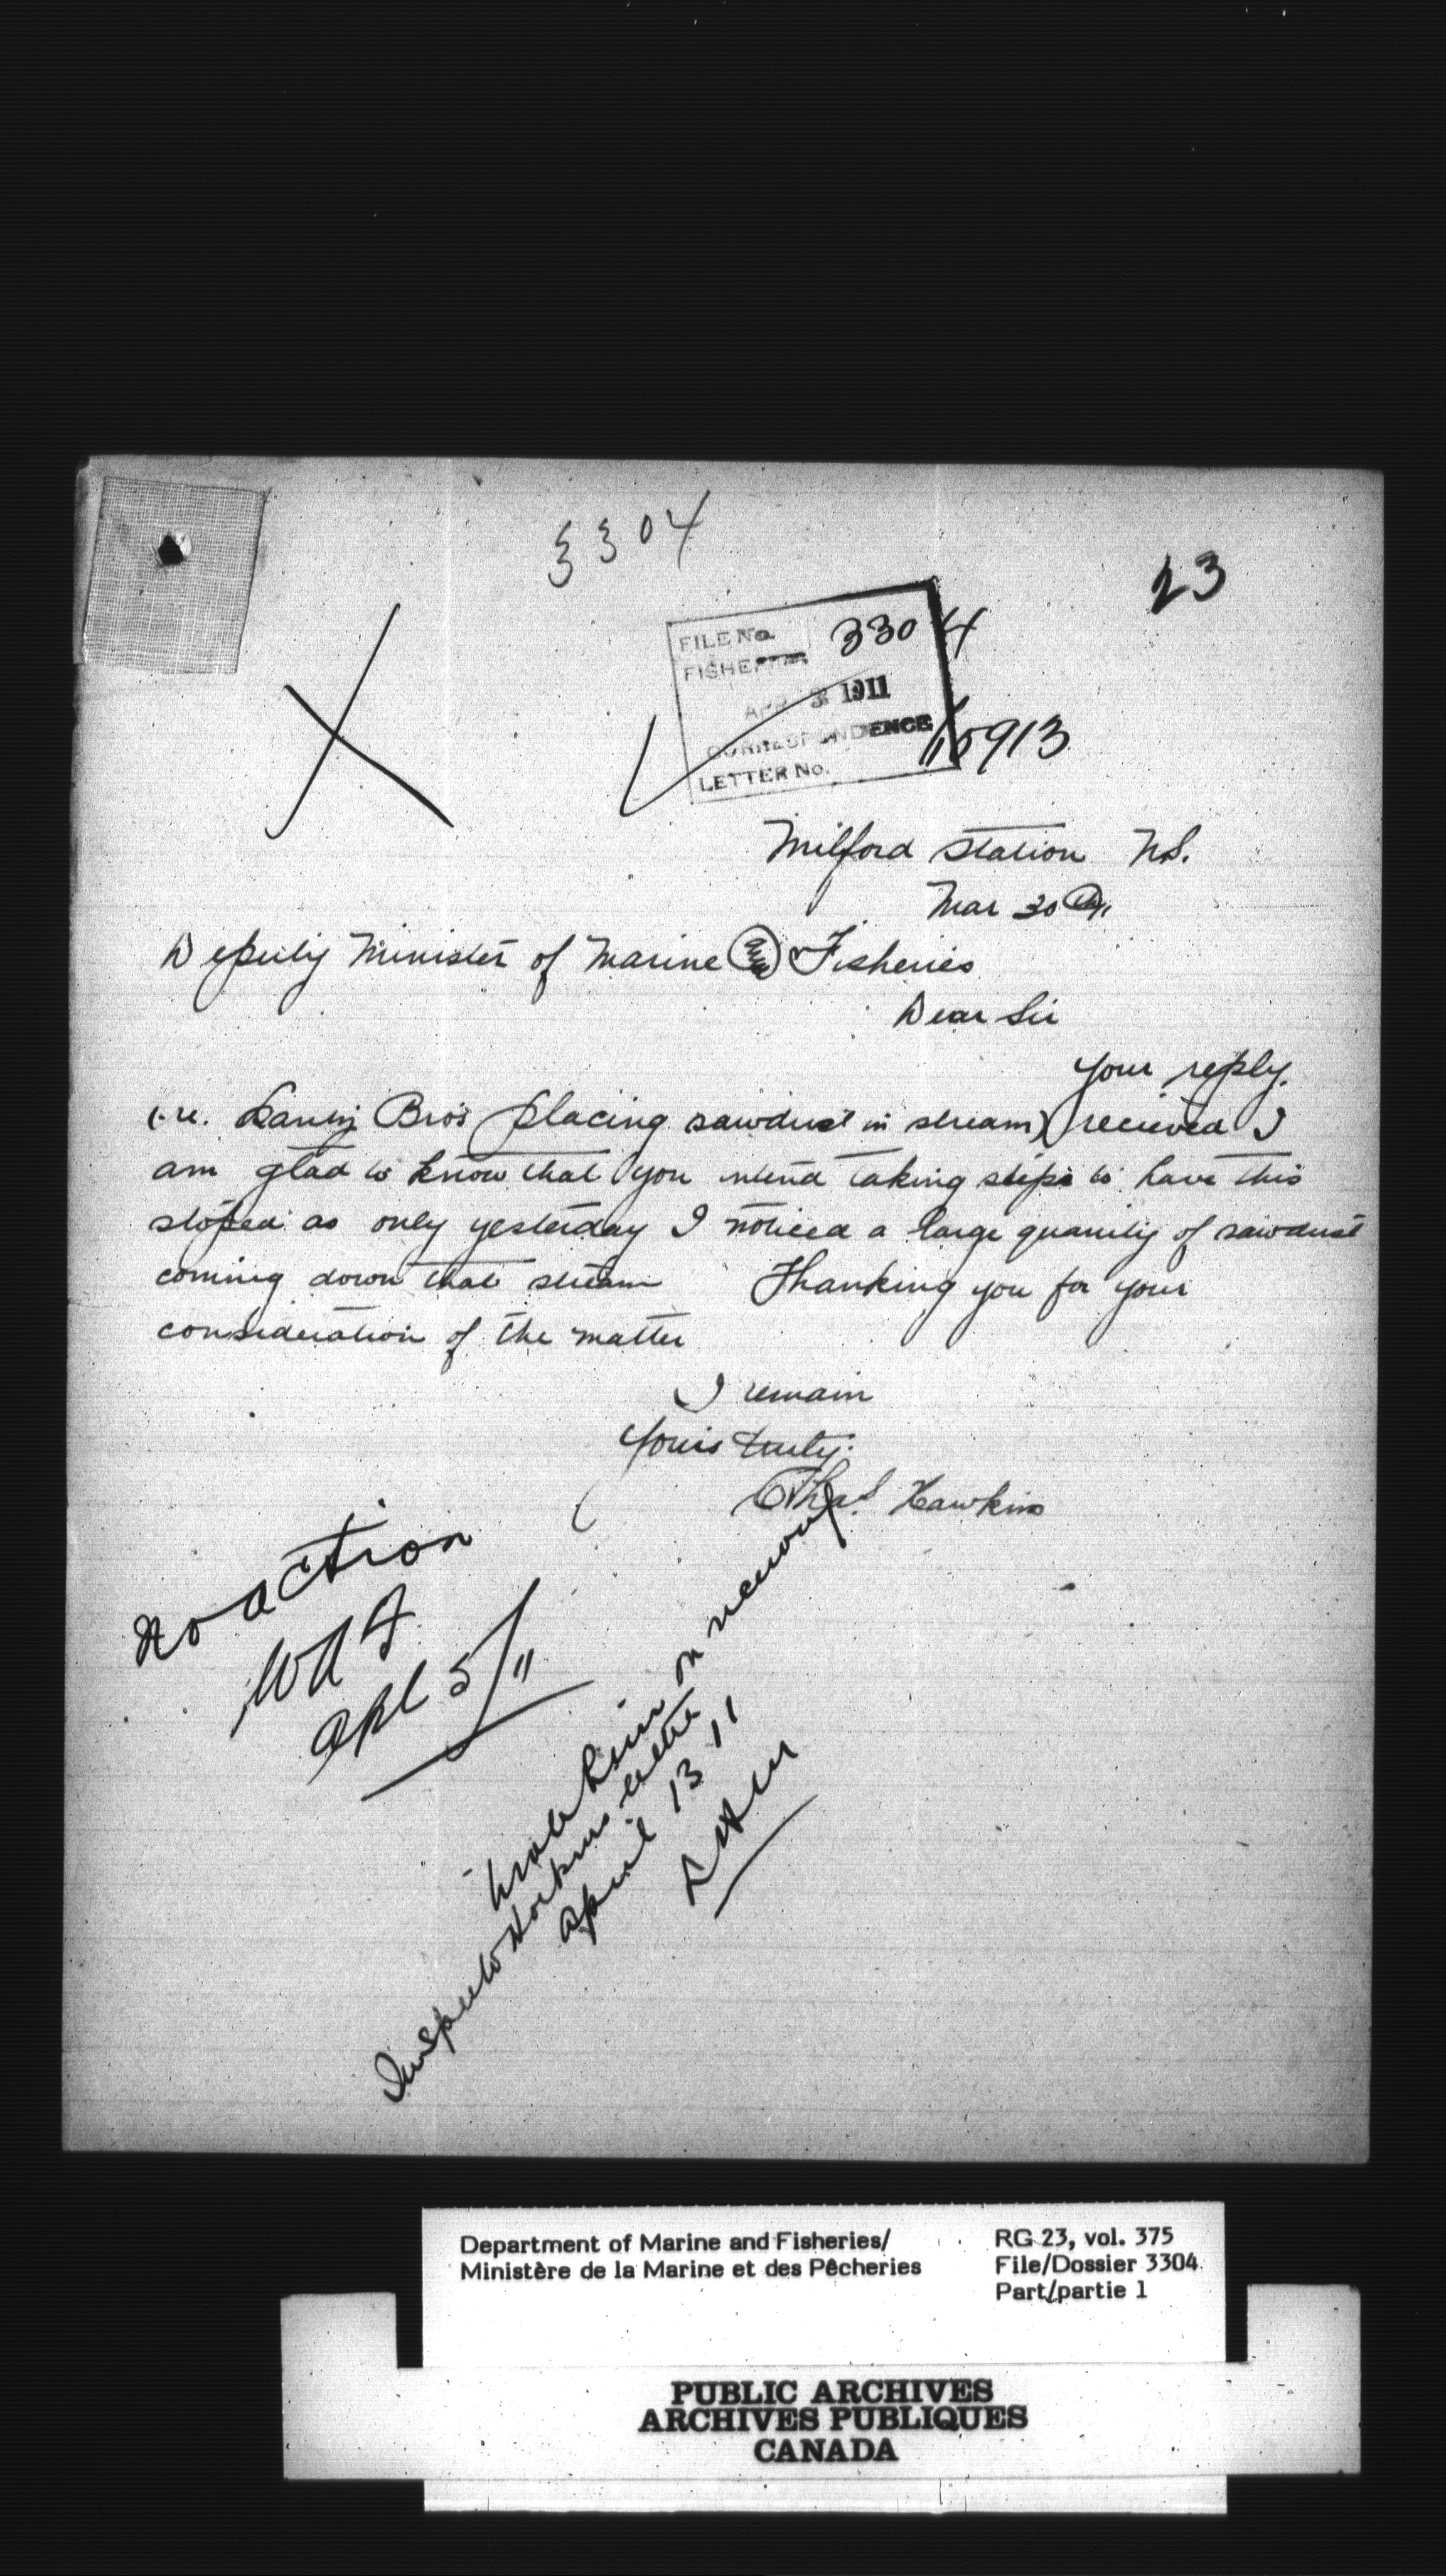 3304
23
FILE No. 3304
FISHERIES
APR 3 1911
CORRESPONDENCE
LETTER No. 10913
Milford Station N.S.
Mar 30
Deputy Minister of Marine & Fisheries
Dear Sir
Your reply.
(re. Bros placing sawdust in stream) recieved I
am glad to know that you intend taking steps to have this
stoped as only yesterday I noticed a large quanity of sawdust
coming down that stream Thanking you for your
consideration of the matter
I remain
Yours truly.
Thos. Hawkins
No action
Apl 5/11
on
April 13 11
Department of Marine and Fisheries/
Ministère de la Marine et des Pêcheries
RG 23, vol. 375
File/Dossier 3304
Part/partie 1
PUBLIC ARCHIVES
ARCHIVES PUBLIQUES
CANADA